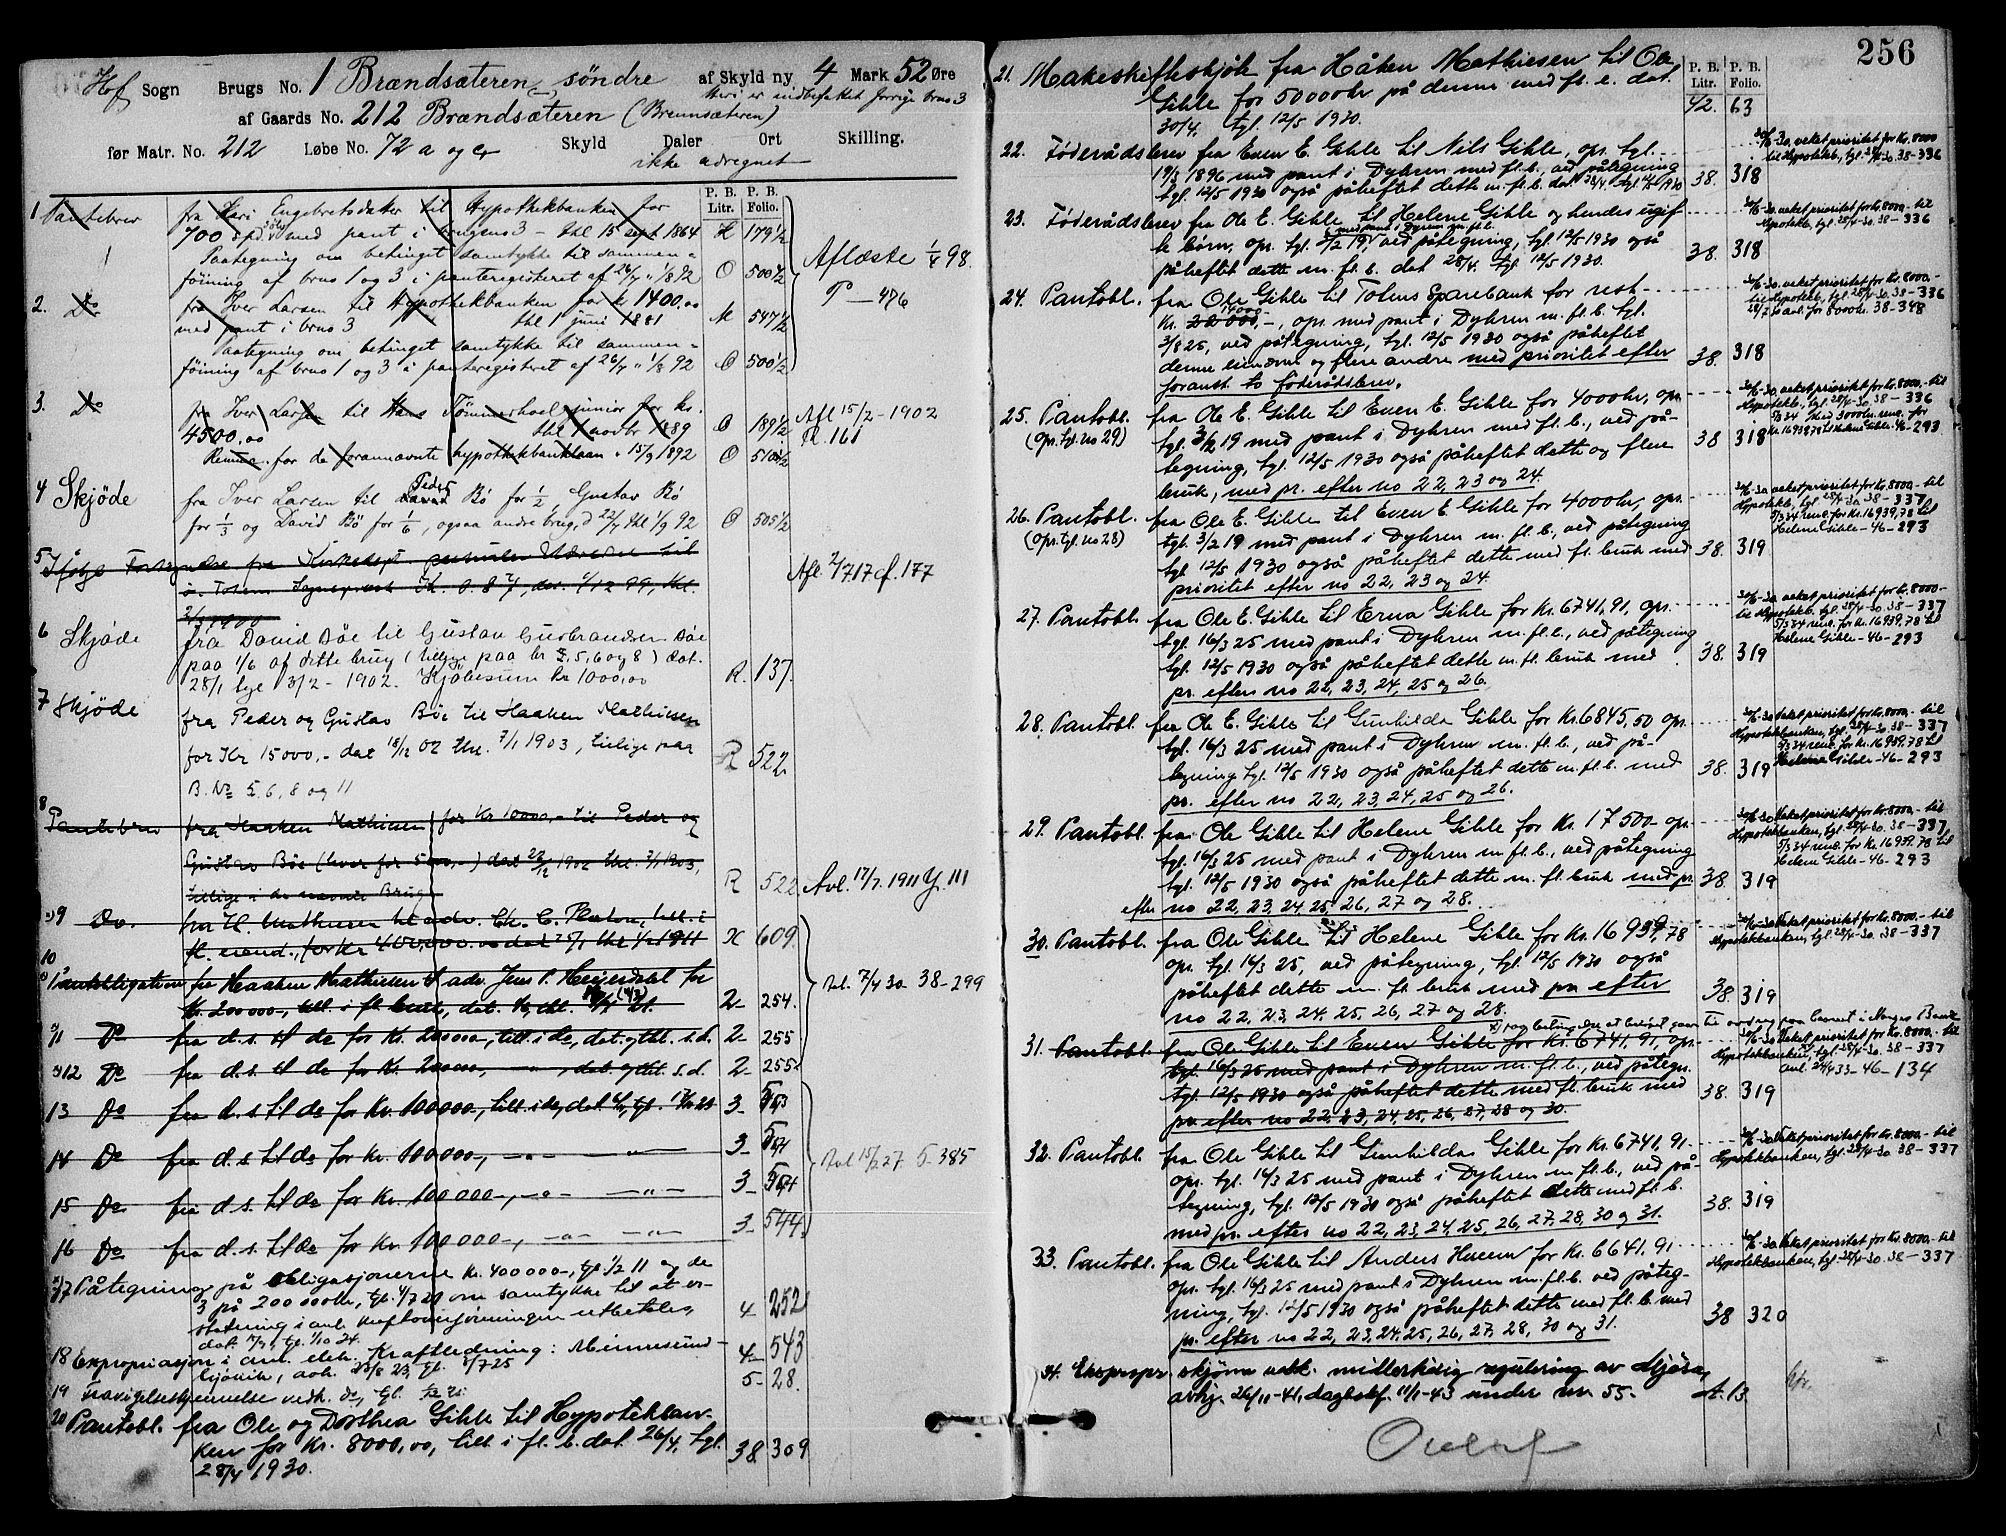 Hof Sogn Brugs No. 1 Brændsæteren søndre af Skyld ny 4 Mark 52 Øre
Heri er indbefattet forrige brus 3
af Gaards No. 212 Brændsæteren (Brennsæteren)
før Matr. No. 212 Løbe No. 72 a og c Skyld Daler Ort Skilling.
ikke adregnet
P. B. Litr. P. B. Folio.
1 Pantebrev fra Kari Engebretsdatter til Hypothekbanken for
700 spd. sølv med pant i brugens 3 - thl 15 sept 1864 H 179 1/2
Paategning om betinget samtykke til sammen=
føining af brus 1 og 3 i panteregisteret af 26/7 " 1/8 92 O 500 1/2
Aflæste 1/4 98.
P — 476
2. Do fra Iver Larsen til Hypothekbanken for kr 1400,00
med pant i brus 3 thl 1 juni 1881 M 547 1/2
Paategning om betinget samtykke til sammen=
føining af brus 1 og 3 i panteregisteret af 26/7 " 1/8 92 O 500 1/2
3. Do fra Iver Larsen til Hans Tømmerhoel junior for kr.
4500,00 thl 1 novbr 1889 O 189 1/2
Afl 15/2 - 1902
R. 161
for de forannævnte hypothekbanklaan " 15/9 1892 O 510 1/2
4 Skjøde fra Iver Larsen til Peder Bø for 1/2, Gustav Bø
for 1/3 og David Bø for 1/6, ogsaa andre brug, d 22/7 thl 1/9 92 O 505 1/2
5 Ifølge
ø. Toten Sogneprest
2/3 1900
Afl. 2/7 17 cf. 177
6 Skjøde fra David Bøe til Gustav Gusbrandsen Bøe
paa 1/6 af dette brug (tillige paa br 2, 5, 6 og 8) dat.
28/1 tgl 3/2 - 1902. Kjøbesum kr 1000,00 R. 137.
7 Skjøde fra Peder og Gustav Bøe til Haaken Mathiesen
for Kr 15000,- dat 18/12 02 thl. 7/1 1903, tillige paa R 522
B. No 5, 6, 8 og 11
8 Pantebrev fra Haaken Mathiesen for Kr 10000,- til Peder og
Gustav Bøe (hver for 5000,-) dat 22/12 1902 thl. 7/1 1903,
tillige i de nævnte Brug R 522 Avl. 17/7. 1911 Y. 111
9 Do. fra H. Mathiesen til adv. Chr. C. Platou, till. i
fl. eiend., for Kr 400,000.00 X 609.
10 Pantobligation fra Haaken Mathiesen til adv. Jens P. Heyerdahl for
Kr. 200 000,-, till. i fl. bruk, 2- 254.
Avl. 7/4 30 38-299
11 Do fra d.s. til do for Kr. 200 000,-, till. i do, dat. og thl. s.d. 2- 255
12 Do fra d.s. til do for Kr. 200000, dat. og thl. s.d. 2- 255
13 Do fra d.s. til do for Kr. 100000,-, till. i do, 3-
14 Do fra d.s. til do for Kr. 100 000,-, 3-
Avl 15/2 27 5-385
15 Do fra d.s. til do for Kr. 100 000-, 3-
16 Do fra d.s. til do for Kr. 100 000-, 3- 544
17 Påtegning på obligasjonerne Kr. 400 000-, tgl. 1/2 11 og de
3 på 200 000 kr, tgl. om samtykke til at er-
statning i anl. kraftoverføringen utbetales, 4- 252
18 Expropriasjon i anl. elek. Kraftledning: Minnesund - 4- 543
19 5- 28.
20 Pantobl. fra Ole og Dorthea Gihle til Hypotekban-
ken for Kr. 8000,00, till. i fl. b. dat. 26/4, tgl.
28/4 1930. 38. 309
256
P. B. Litr. P. B. Folio.
21. Makeskifteskjøte fra Håken Mathiesen til Ole
Gihle for 50000 kr på denne med fl. e. dat.
30/4. tgl. 12/5 1930. 42. 63
22. Føderådsbrev fra Even E. Gihle til Nils Gihle, opr. tgl.
19/3 1896 med pant i Dyhren med fl. b., ved påtegning
tgl. 12/5 1930 også påheftet dette m. fl. b. dat. 28/4. tgl. 12/5 1930 38. 318
30/6-30. veket prioritet for kr. 8000
til Hypotekb., tgl. 28/4-30. 38-336
23. Føderådsbrev fra Ole E. Gihle til Helene Gihle og hendes ugif
te børn, opr. tgl. 3/2 19, med pant i Dyhren m. fl. b. ved påtegning, tgl. 12/5 1930 også
påheftet dette m. fl. b. dat 28/4. tgl 12/5 1930. 38. 318
30/6-30. veket prioritet for kr. 8000.- til
Hypotekb., tgl. 28/4-30. 38-336
24. Pantobl. fra Ole Gihle til Totens Sparebank for rest
Kr. 22 000,-, 14000 opr. med pant i Dyhren m. fl. b. tgl.
3/8 25, ved påtegning, tgl. 12/5 1930 også påheftet
denne eiendom og flere andre med prioritet efter
foranst. to føderådsbrev. 38. 318
30/6-30. veket prioritet for kr. 8000.-
til Hypotekb., tgl. 28/4-30. 38-336
avl. for 8000 kr. 38-348
25. Pantobl. fra Ole E. Gihle til Even E. Gihle for 4000 kr, opr.
(Opr. tgl. no 29) tgl. 3/2 19 med pant i Dyhren med fl. b., ved på-
tegning, tgl. 12/5 1930 også påheftet dette og flere
bruk, med pr. efter no 22, 23 og 24. 38 318
30/6-30. veket prioritet for kr. 8000.- til
Hypotekb., tgl. 28/4-30. 38-336
Kr. 16939,78 til Helene Gihle. 46-293
26. Pantobl. fra Ole E. Gihle til Even E. Gihle for 4000 kr, opr.
(Opr. tgl. no 28) tgl. 3/2 19 med pant i Dyhren m. fl. b., ved påtegning
tgl. 12/5 1930 også påheftet dette med fl. bruk med
prioritet efter no 22, 23 og 24. 38. 319
30/6-30. veket prioritet for kr. 8000.- til
Hypotekb., tgl. 28/4-30. 38-337
5/3 34 for kr. 16939,78 til
Helene Gihle - 46-293
27. Pantobl. fra Ole E. Gihle til Erna Gihle for Kr. 6741,91, opr.
tgl. 16/3 25 med pant i Dyhren m. fl. b., ved påtegning
tgl. 12/5 1930 også påheftet dette m. fl. bruk med
pr. efter no 22, 23, 24, 25 og 26. 38. 319
30/6-30. veket prioritet for kr. 8000.-
til Hypotekb., tgl. 28/4-30. 38-337
5/3 34 for kr. 16939,78 til
Helene Gihle - 46-293
28. Pantobl. fra Ole E. Gihle til Gunhilda Gihle for Kr. 6845,50 opr.
tgl. 16/3 25 med pant i Dyhren m. fl. b., ved på-
tegning tgl. 12/5 1930 også påheftet dette m. fl. b. med
pr. efter no 22, 23, 24, 25 og 26. 38. 319
30/6-30 veket prioritet for kr. 8000.- til
Hypotekbanken, tgl. 28/4-30. 38-337
5/3 34 for kr. 16939.78 til
Helene Gihle - 46-293
29. Pantobl. fra Ole Gihle til Helene Gihle for Kr. 17 500- opr.
tgl. 16/3 25 med pant i Dyhren m. fl. b., ved påtegning
tgl. 12/5 1930 også påheftet dette m. fl. bruk med pr.
efter no 22, 23, 24, 25, 26, 27 og 28. 38. 319
30/6-30 veket prioritet for kr. 8000.- til
Hypotekbanken, tgl. 28/4-30. 38-337
5/3 34 for kr. 16939.78 til
Helene Gihle - 46-293
30. Pantobl. fra Ole Gihle til Helene Gihle for Kr. 16939,78
opr. tgl. 16/3 25, ved påtegning, tgl. 12/5 1930 også
påheftet dette m. fl. bruk med pr. efter
no 22, 23, 24, 25, 26, 27 og 28. 38 319
30/6-30 veket prioritet for kr. 8000.- til
Hypotekbanken, tgl. 28/4-30. 38-337
31. Pantobl. fra Ole Gihle til Even Gihle for Kr. 6741,91, opr.
tgl. 16/3 25 med pant i Dyhren m. fl. b., ved påtegn.
tgl. 12/5 1930 også påheftet dette med fl. bruk med
pr. efter no 22, 23, 24, 25, 26, 27, 28 og 30. 38. 319
30/6-30 veket prioritet for kr. 8000.- til
Hypotekbanken, tgl. 28/4-30. 38-337
avl. 24/4 33 - 46-134
32. Pantobl. fra Ole Gihle til Gunhilda Gihle for Kr. 6741,91
opr. tgl. 16/3 25 med pant i Dyhren m. fl. b., ved på-
tegning, tgl. 12/5 1930 også påheftet dette med fl. b.
med pr. efter no 22, 23, 24, 25, 26, 27, 28, 30 og 31. 38. 319
30/6-30 veket prioritet for kr. 8000.- til
Hypotekbanken, tgl. 28/4-30. 38-337
33. Pantobl. fra Ole Gihle til Anders Hveem for Kr. 6641,91
opr. tgl. 16/3 25 med pant i Dyhren m. fl. b. ved påteg-
ning, tgl. 12/5 1930 også påheftet dette med fl. b. med
pr. efter no 22, 23, 24, 25, 26, 27, 28, 30 og 31. 38 320
30/6-30 veket prioritet for kr. 8000.- til
Hypotekbanken, tgl. 28/4-30. 38-337
34. Ekspropr. skjønn vedk. midlertidig regulering av Mjøsa,
avhj. 26/11-41, dagbokf. 11/1-43 under nr. 55. A. 13